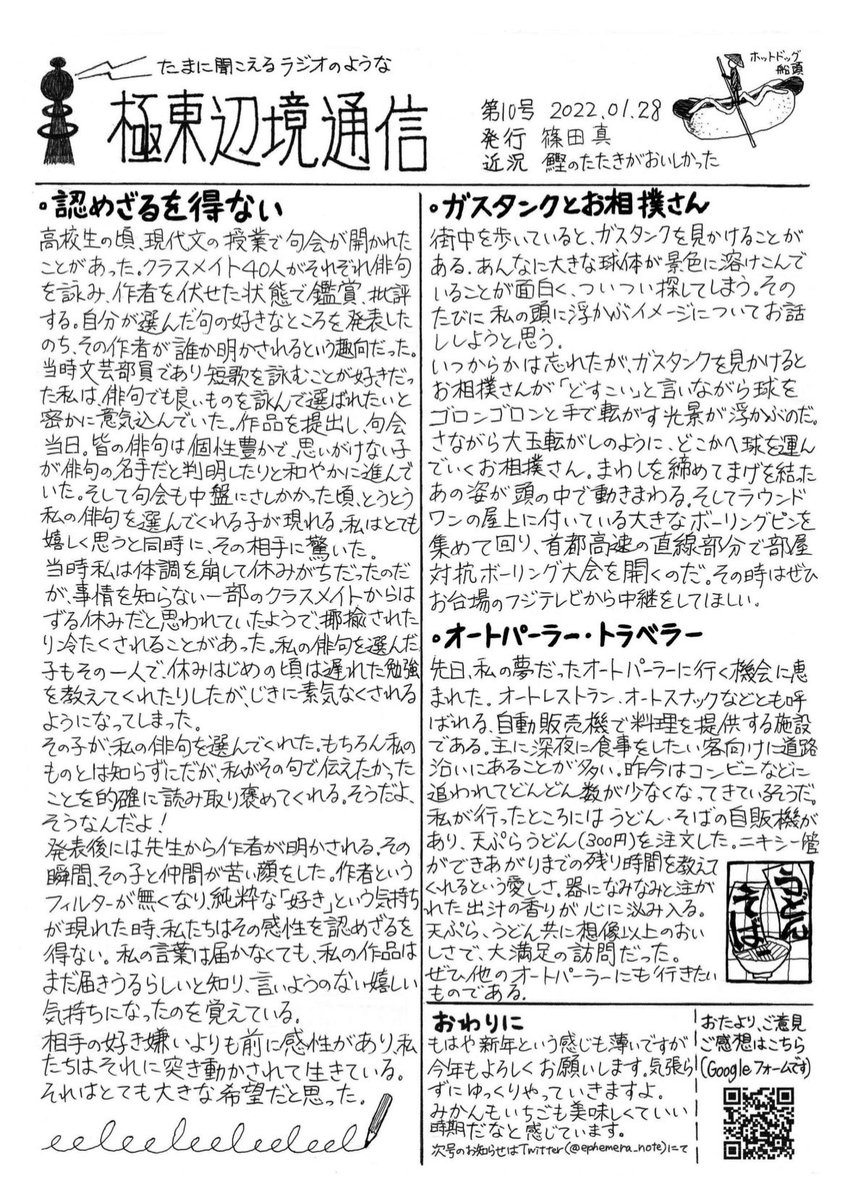 たまに聞こえるラジオのような
極東辺境通信
第10号 2022.01.28
発行 篠田真
近況 鰹のたたきがおいしかった
ホットドッグ
船頭
・認めざるを得ない
高校生の頃、現代文の授業で句会が開かれた
ことがあった。クラスメイト40人がそれぞれ俳句
を詠み、作者を伏せた状態で鑑賞、批評
する。自分が選んだ句の好きなところを発表した
のち、その作者が誰か明かされるという趣向だった。
当時文芸部員であり短歌を詠むことが好きだっ
た私は、俳句でも良いものを詠んで選ばれたいと
密かに意気込んでいた。作品を提出し、句会
当日。皆の俳句は個性豊かで、思いがけない子
が俳句の名手だと判明したりと和やかに進んで
いた。そして句会も中盤にさしかかった頃、とうとう
私の俳句を選んでくれる子が現れる。私はとても
嬉しく思うと同時に、その相手に驚いた。
当時私は体調を崩して休みがちだったのだ
が、事情を知らない一部のクラスメイトからは
ずる休みだと思われていたようで、揶揄された
り冷たくされることがあった。私の俳句を選んだ
子もその一人で、休みはじめの頃は遅れた勉強
を教えてくれたりしたが、じきに素気なくされる
ようになってしまった。
その子が、私の俳句を選んでくれた。もちろん私の
ものとは知らずにだが、私がその句で伝えたかった
ことを的確に読み取り褒めてくれる。そうだよ、
そうなんだよ!
発表後には先生から作者が明かされる。その
瞬間、その子と仲間が苦い顔をした。作者という
フィルターが無くなり、純粋な「好き」という気持ち
が現れた時、私たちはその感性を認めざるを
得ない。私の言葉は届かなくても、私の作品は
まだ届きうるらしいと知り、言いようのない嬉しい
気持ちになったのを覚えている。
相手の好き嫌いよりも前に感性があり、私
たちはそれに突き動かされて生きている。
それはとても大きな希望だと思った。
・ガスタンクとお相撲さん
街中を歩いていると、ガスタンクを見かけることが
ある。あんなに大きな球体が景色に溶けこんで
いることが面白く、ついつい探してしまう。その
たびに私の頭に浮かぶイメージについてお話
ししようと思う。
いつからかは忘れたが、ガスタンクを見かけると
お相撲さんが「どすこい」と言いながら球を
ゴロンゴロンと手で転がす光景が浮かぶのだ。
さながら大玉転がしのように、どこかへ球を運ん
でいくお相撲さん。まわしを締めてまげを結った
あの姿が頭の中で動きまわる。そしてラウンド
ワンの屋上に付いている大きなボーリングピンを
集めて回り、首都高速の直線部分で部屋
対抗ボーリング大会を開くのだ。その時はぜひ
お台場のフジテレビから中継をしてほしい。
・オートパーラー・トラベラー
先日、私の夢だったオートパーラーに行く機会に恵
まれた。オートレストラン、オートスナックなどとも呼
ばれる、自動販売機で料理を提供する施設
である。主に深夜に食事をしたい客向けに道路
沿いにあることが多い。昨今はコンビニなどに
追われてどんどん数が少なくなってきているそうだ。
私が行ったところにはうどん・そばの自販機が
あり、天ぷらうどん(300円)を注文した。ニキシー管
ができあがりまでの残り時間を教えて
くれるという愛しさ。器になみなみと注が
れた出汁の香りが心に沁み入る。
天ぷら、うどん共に想像以上のおい
しさで、大満足の訪問だった。
ぜひ他のオートパーラーにも行きたい
ものである。
うどん
そば
おわりに
もはや新年という感じも薄いですが
今年もよろしくお願いします。気張ら
ずにゆっくりやっていきますよ。
みかんもいちごも美味しくていい
時期だなと感じています。
次号のお知らせはTwitter(@ephemera_note)にて
おたより、ご意見
ご感想はこちら
(Googleフォームです)